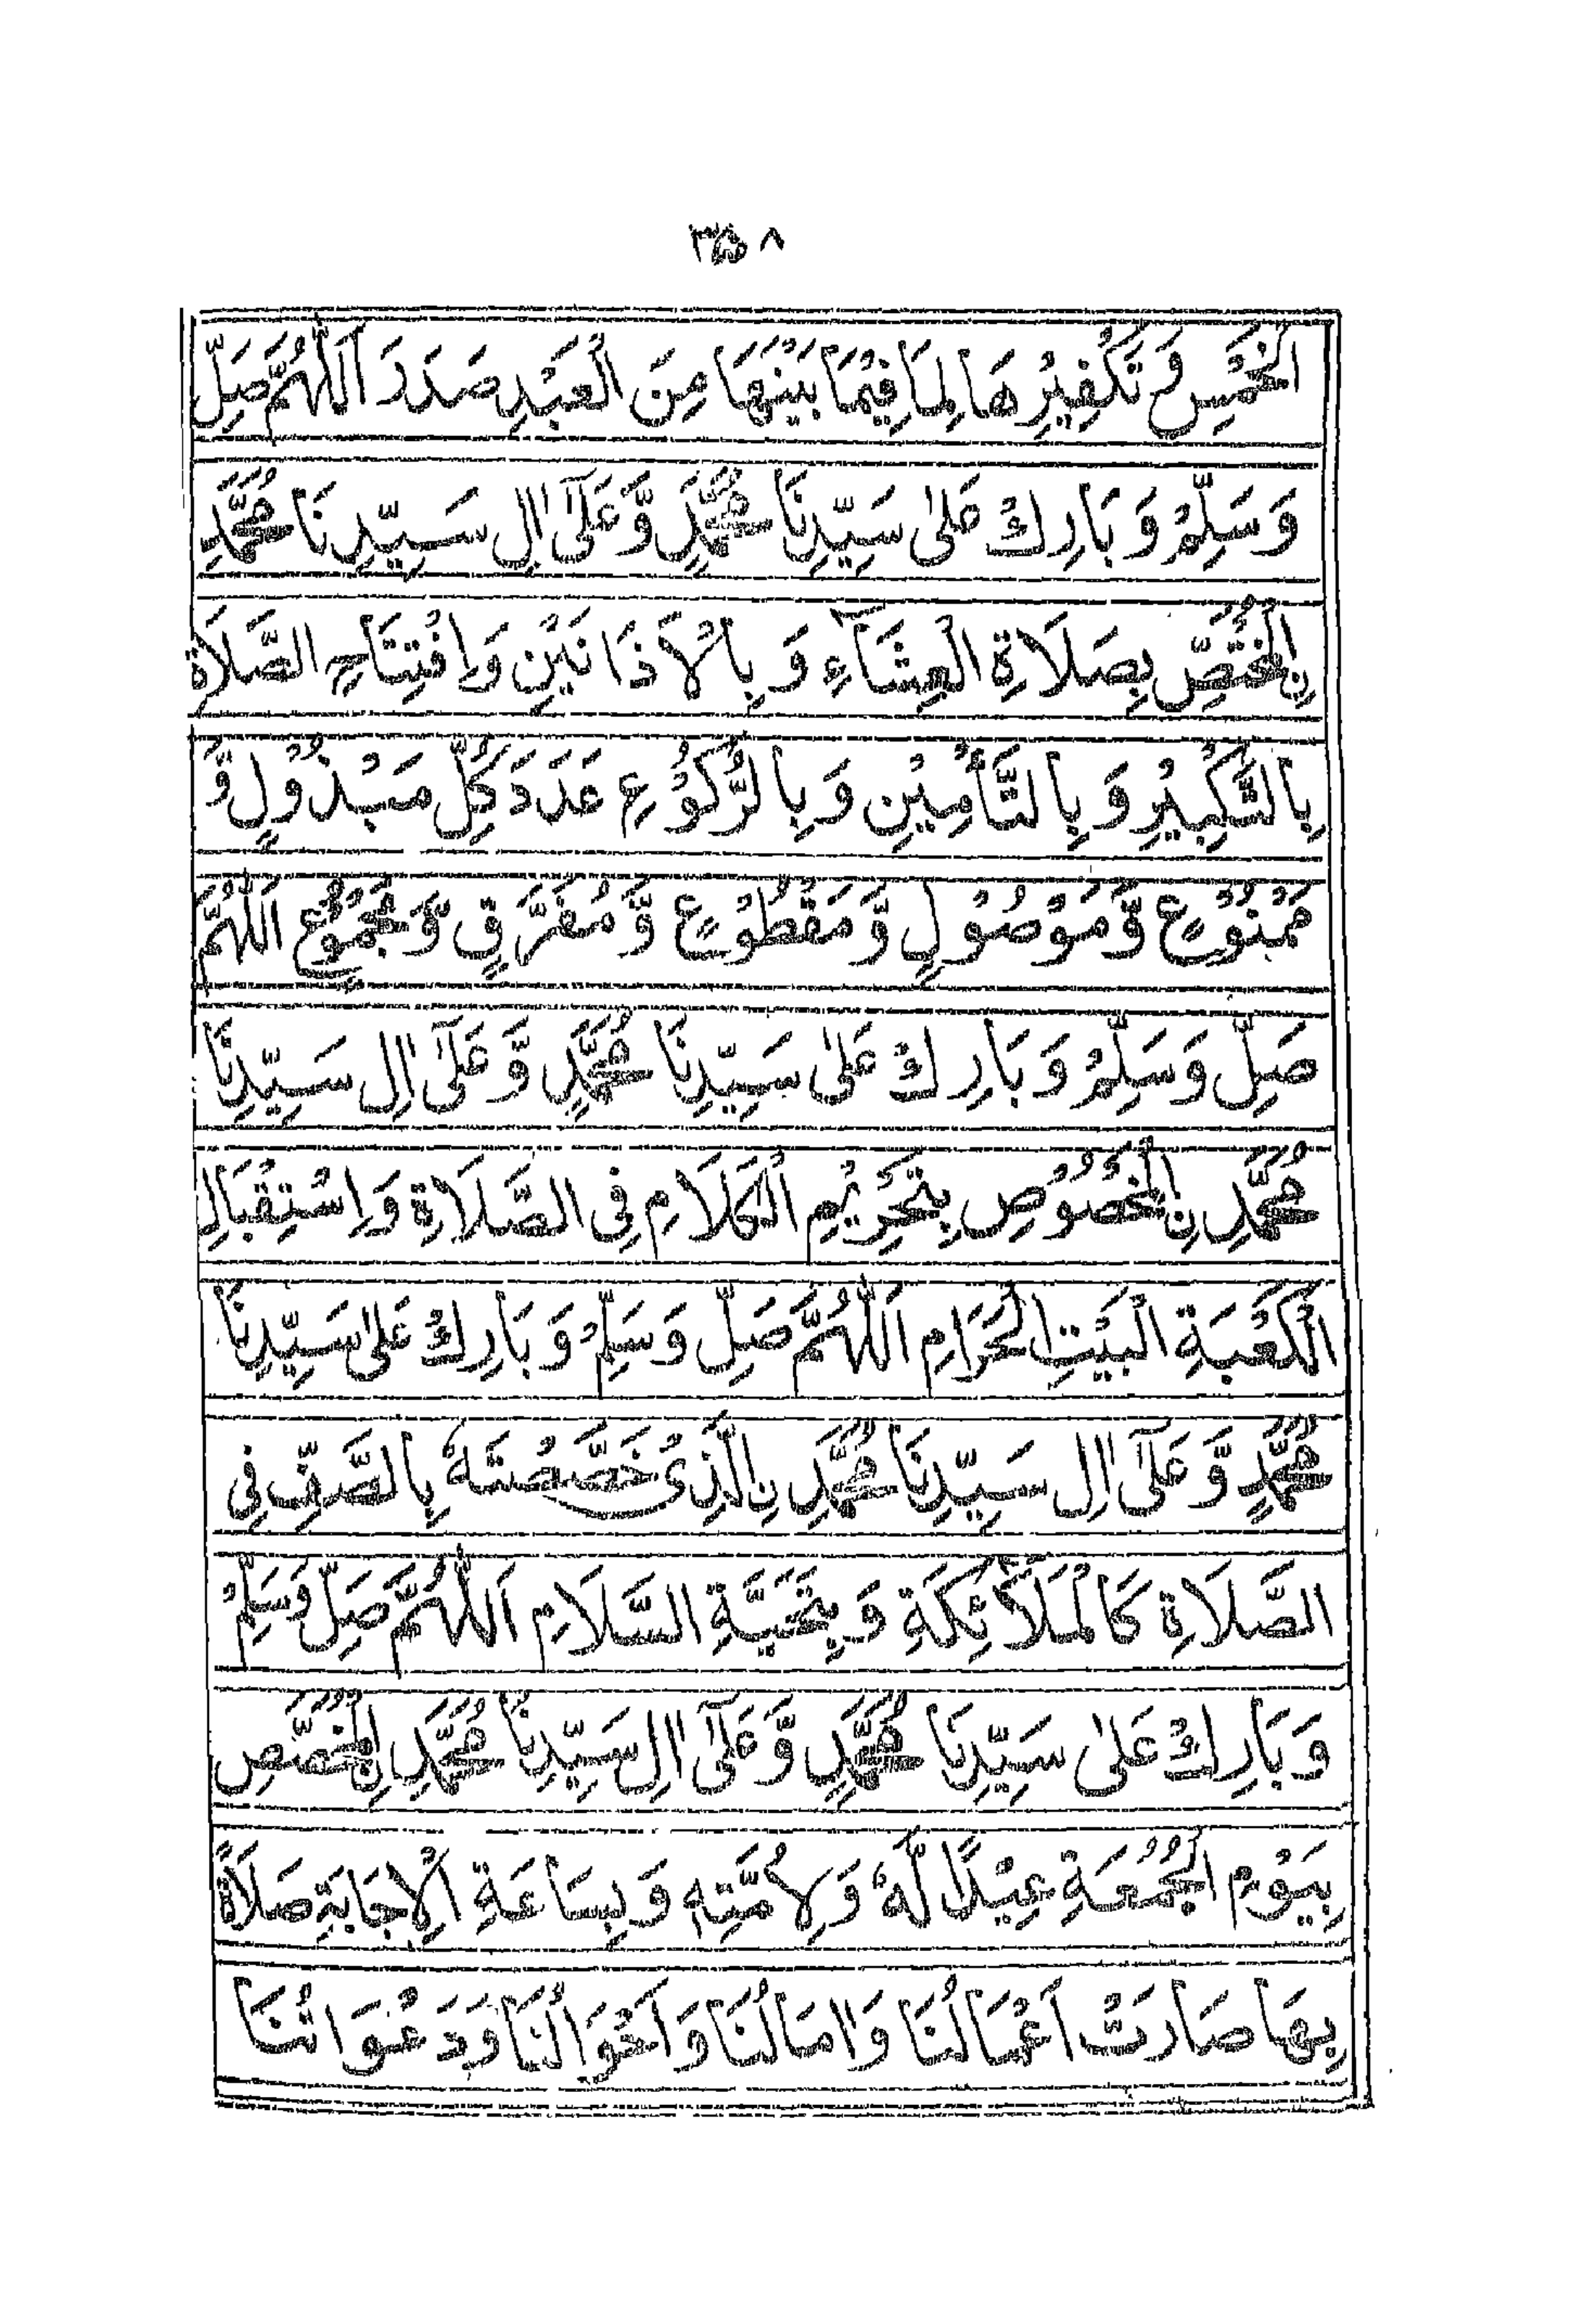 ٣٥٨
الْخَمْسِ وَ تَكْفِيْرِ هَا لِمَا فِيْمَا بَيْنَهَا مِنَ الْعَبْدِ صَدَرَ اَللّٰهُمَّ صَلِّ
وَ سَلِّمْ وَ بَارِكْ عَلٰى سَيِّدِنَا مُحَمَّدٍ وَّ عَلٰٓى اٰلِ سَيِّدِنَا مُحَمَّدِ
نِ الْمُخْتَصِّ بِصَلَاةِ الْعِشَآءِ وَ بِالْاَذَانَيْنِ وَ اِفْتِتَاحِهِ الصَّلَاةَ
بِالتَّكْبِيْرِ وَ بِالتَّأْمِيْنِ وَ بِالرُّكُوْعِ عَدَدَ كُلِّ مَبْذُوْلٍ وَّ
مَمْنُوْعٍ وَّ مَوْصُوْلٍ وَّ مَقْطُوْعٍ وَّ مُفَرَّقٍ وَّ مَجْمُوْعٍ اَللّٰهُمَّ
صَلِّ وَ سَلِّمْ وَ بَارِكْ عَلٰى سَيِّدِنَا مُحَمَّدٍ وَّ عَلٰٓى اٰلِ سَيِّدِنَا
مُحَمَّدِ نِ الْمَخْصُوْصِ بِتَحْرِيْمِ الْكَلَامِ فِى الصَّلَاةِ وَ اِسْتِقْبَالِ
الْكَعْبَةِ الْبَيْتِ الْحَرَامِ اَللّٰهُمَّ صَلِّ وَ سَلِّمْ وَ بَارِكْ عَلٰى سَيِّدِنَا
مُحَمَّدٍ وَّ عَلٰٓى اٰلِ سَيِّدِنَا مُحَمَّدِ نِ الَّذِىْ خَصَّصْتَهٗ بِالصَّفِّ فِى
الصَّلَاةِ كَالْمَلَآئِكَةِ وَ بِتَحِيَّةِ السَّلَامِ اَللّٰهُمَّ صَلِّ وَ سَلِّمْ
وَ بَارِكْ عَلٰى سَيِّدِنَا مُحَمَّدٍ وَّ عَلٰٓى اٰلِ سَيِّدِنَا مُحَمَّدِ نِ الْمُخَصَّصِ
بِيَوْمِ الْجُمُعَةِ عِيْدًا لَّهٗ وَ لِاُمَّتِهٖ وَ بِسَاعَةِ الْاِجَابَةِ صَلَاةً
بِهَا صَارَتْ اَعْمَالُنَا وَ اٰمَالُنَا وَ اَحْوَالُنَا وَ دَعْوَاتُنَا